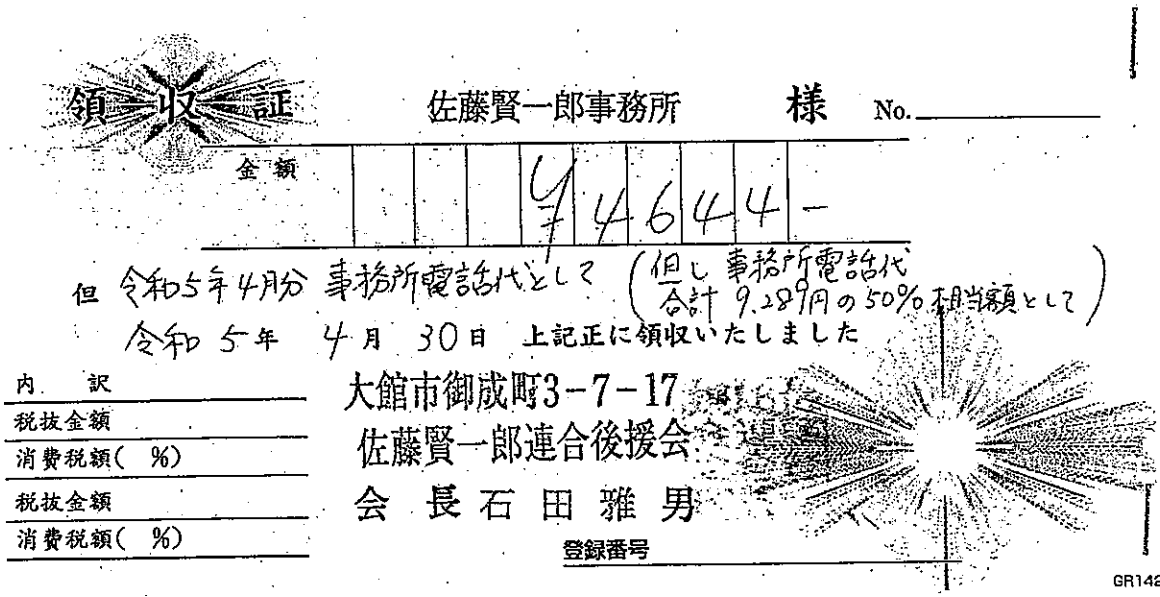 領収証 佐藤賢一郎事務所 様 No.
金額 ¥4644-
但 令和5年4月分 事務所電話代として (但し 事務所電話代
合計 9.289円の50%相当額として)
令和 5年 4月 30日 上記正に領収いたしました
内訳
税抜金額
消費税額( %)
税抜金額
消費税額( %)
大館市御成町3-7-17
佐藤賢一郎連合後援会
会長 石田雅男
登録番号
GR142